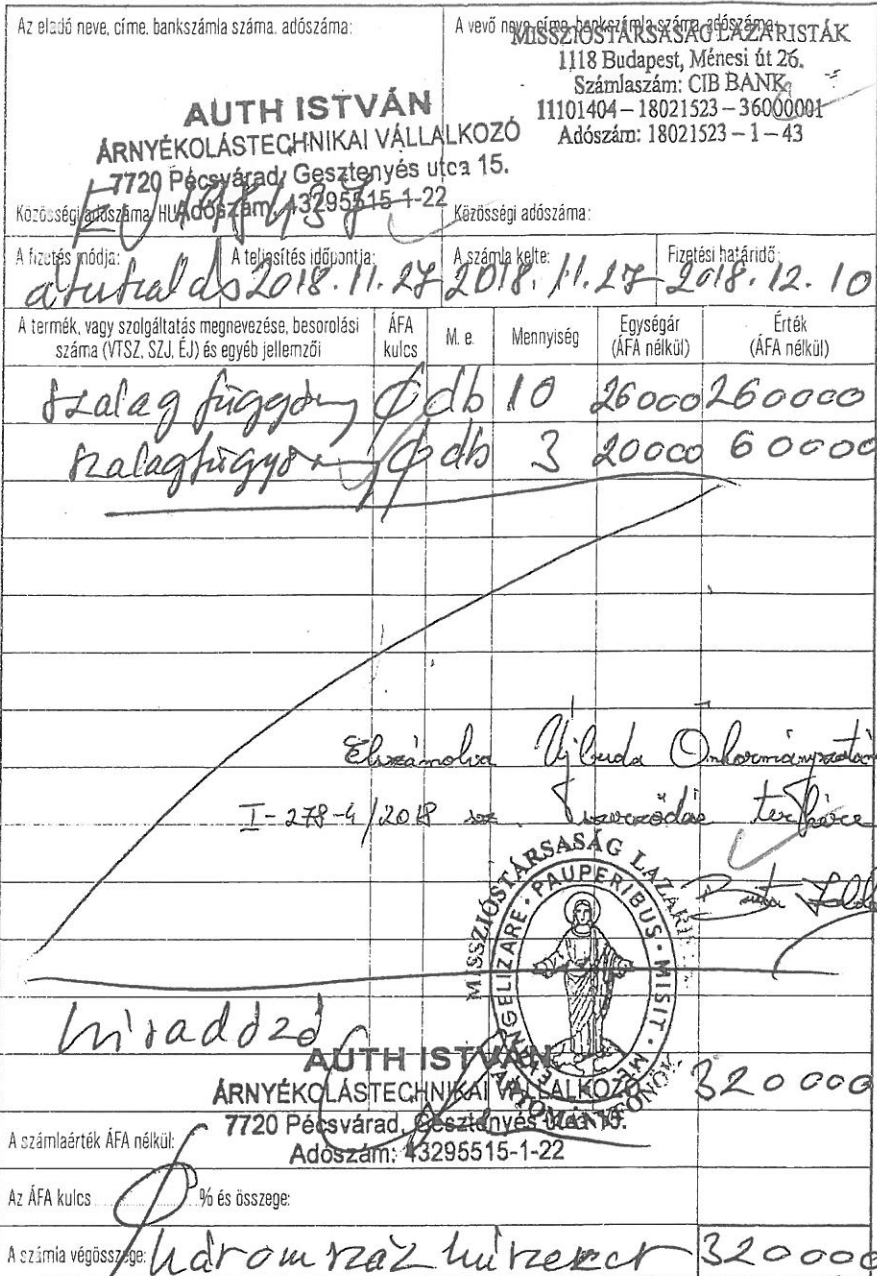 Az eladó neve, címe, bankszámla száma, adószáma:
AUTH ISTVÁN
ÁRNYÉKOLÁSTECHNIKAI VÁLLALKOZÓ
7720 Pécsvárad, Gesztenyés utca 15.
Adószám: 43295515-1-22
Közösségi adószáma: HU
A vevő neve, címe, bankszámla száma, adószáma:
MISSZIÓSTÁRSASÁG LAZARISTÁK
1118 Budapest, Ménesi út 26.
Számlaszám: CIB BANK
11101404 – 18021523 – 36000001
Adószám: 18021523 – 1 – 43
Közösségi adószáma:
A fizetés módja: átutalás
A teljesítés időpontja: 2018.11.27
A számla kelte: 2018.11.27
Fizetési határidő: 2018.12.10
A termék, vagy szolgáltatás megnevezése, besorolási száma (VTSZ, SZJ, ÉJ) és egyéb jellemzői
ÁFA kulcs
M. e.
Mennyiség
Egységár (ÁFA nélkül)
Érték (ÁFA nélkül)
szalag függöny 0 db 10 26000 260000
szalagfüggöny 0 db 3 20000 60000
Elszámolva Újbuda Önkormányzata
I-278-4/2018 sz. szerződés terhére
MISSZIÓSTÁRSASÁG
EVANGELIZARE · PAUPERIBUS · MISIT · ME
kisadózó
AUTH ISTVÁN
ÁRNYÉKOLÁSTECHNIKAI VÁLLALKOZÓ
7720 Pécsvárad, Gesztenyés utca 15.
Adószám: 43295515-1-22
A számlaérték ÁFA nélkül: 320000
Az ÁFA kulcs % és összege:
A számla végösszege: háromszáz húszezer 320000